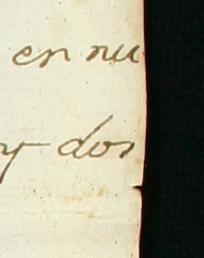 en nu
y dos